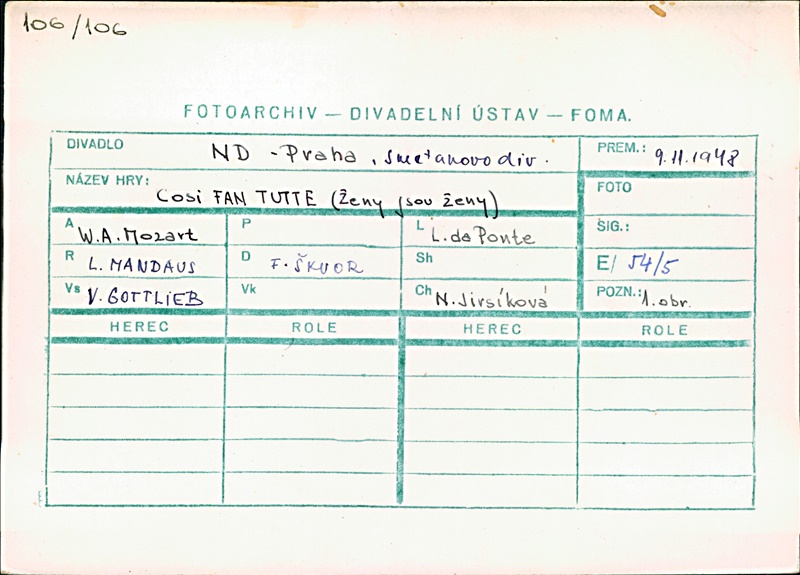 106/106
FOTOARCHIV — DIVADELNÍ ÚSTAV — FOMA.
DIVADLO ND - Praha, Smetanovo div. PREM.: 9.11.1948
NÁZEV HRY: Cosi FAN TUTTE (Ženy jsou ženy) FOTO
A W.A. Mozart P L L. da Ponte SIG.:
R L. MANDAUS D F. ŠKVOR Sh E/ 54/5
Vs V. GOTTLIEB Vk Ch N. Jirsíková POZN.: 1. obr.
HEREC ROLE HEREC ROLE